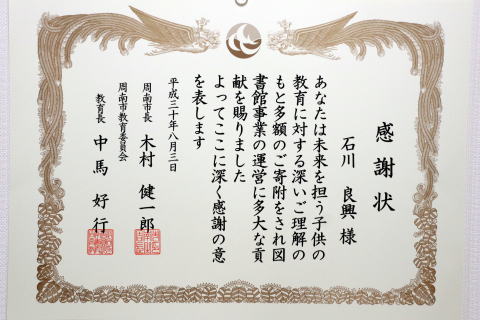 感謝状
石川 良興 様
あなたは未来を担う子供の
教育に対する深いご理解の
もと多額のご寄附をされ図
書館事業の運営に多大な貢
献を賜りました
よってここに深く感謝の意
を表します
平成三十年八月三日
周南市長 木村 健一郎
周南市教育委員会
教育長 中馬 好行